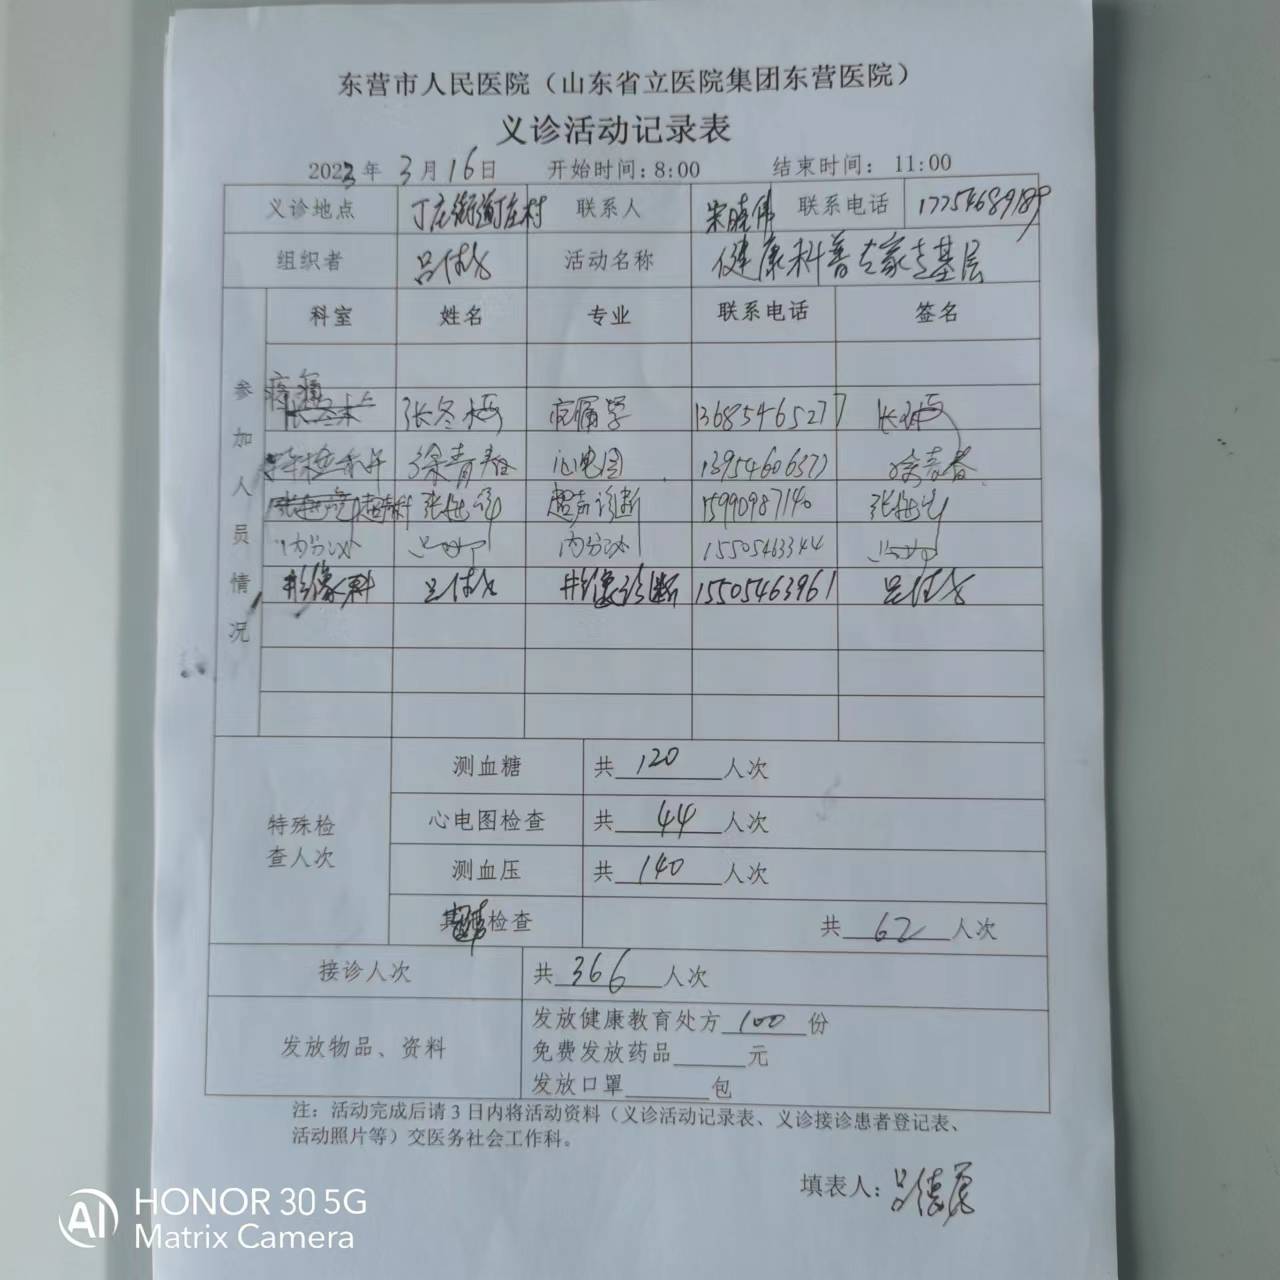 东营市人民医院（山东省立医院集团东营医院）
义诊活动记录表
2023年 3月16日 开始时间：8:00 结束时间： 11:00
义诊地点 丁庄街道丁庄村 联系人 宋晓伟 联系电话 17754689189
组织者 活动名称 健康科普专家走基层
参加人员情况
科室 姓名 专业 联系电话 签名
疼痛 张冬梅 疼痛学 13685465277 张冬梅
徐青春 心电图 13954606377 徐青春
超声科 超声诊断 15990987140
内分泌 内分泌 15505463344
影像科 影像诊断 15505463961
特殊检查人次
测血糖 共120人次
心电图检查 共44人次
测血压 共140人次
检查 共62人次
接诊人次 共366人次
发放物品、资料
发放健康教育处方100份
免费发放药品______元
发放口罩______包
注：活动完成后请3日内将活动资料（义诊活动记录表、义诊接诊患者登记表、
活动照片等）交医务社会工作科。
填表人：
HONOR 30 5G
Matrix Camera